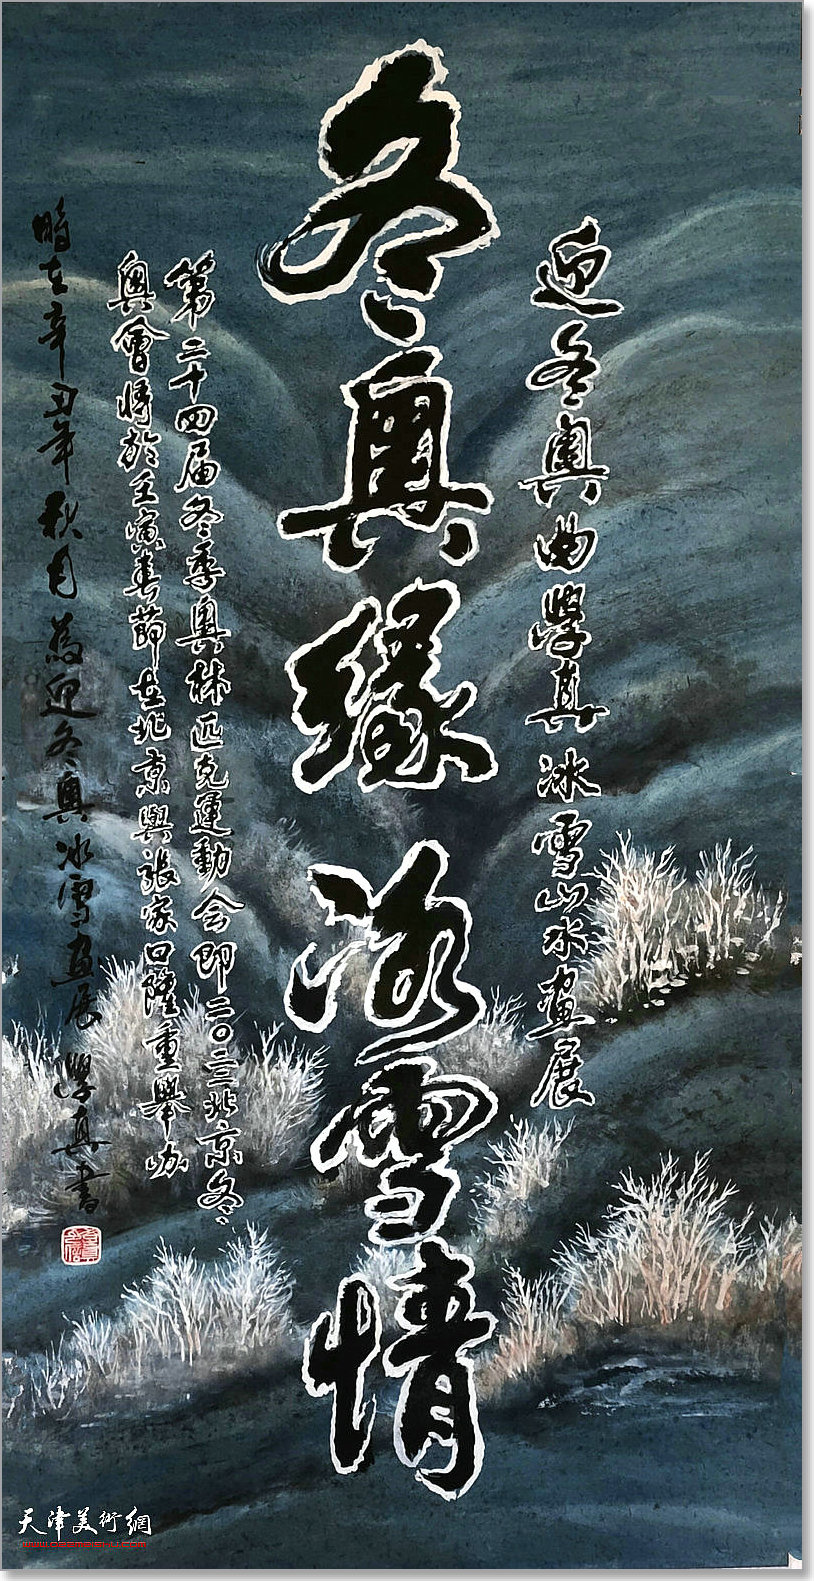 迎冬奥曲學真冰雪山水画展
冬奥緣冰雪情
第二十四届冬季奥林匹克運動会即二〇二二北京冬
奥會将於壬寅春節在北京與張家口隆重舉办
時在辛丑年秋月为迎冬奥冰雪画展學真書
天津美術網